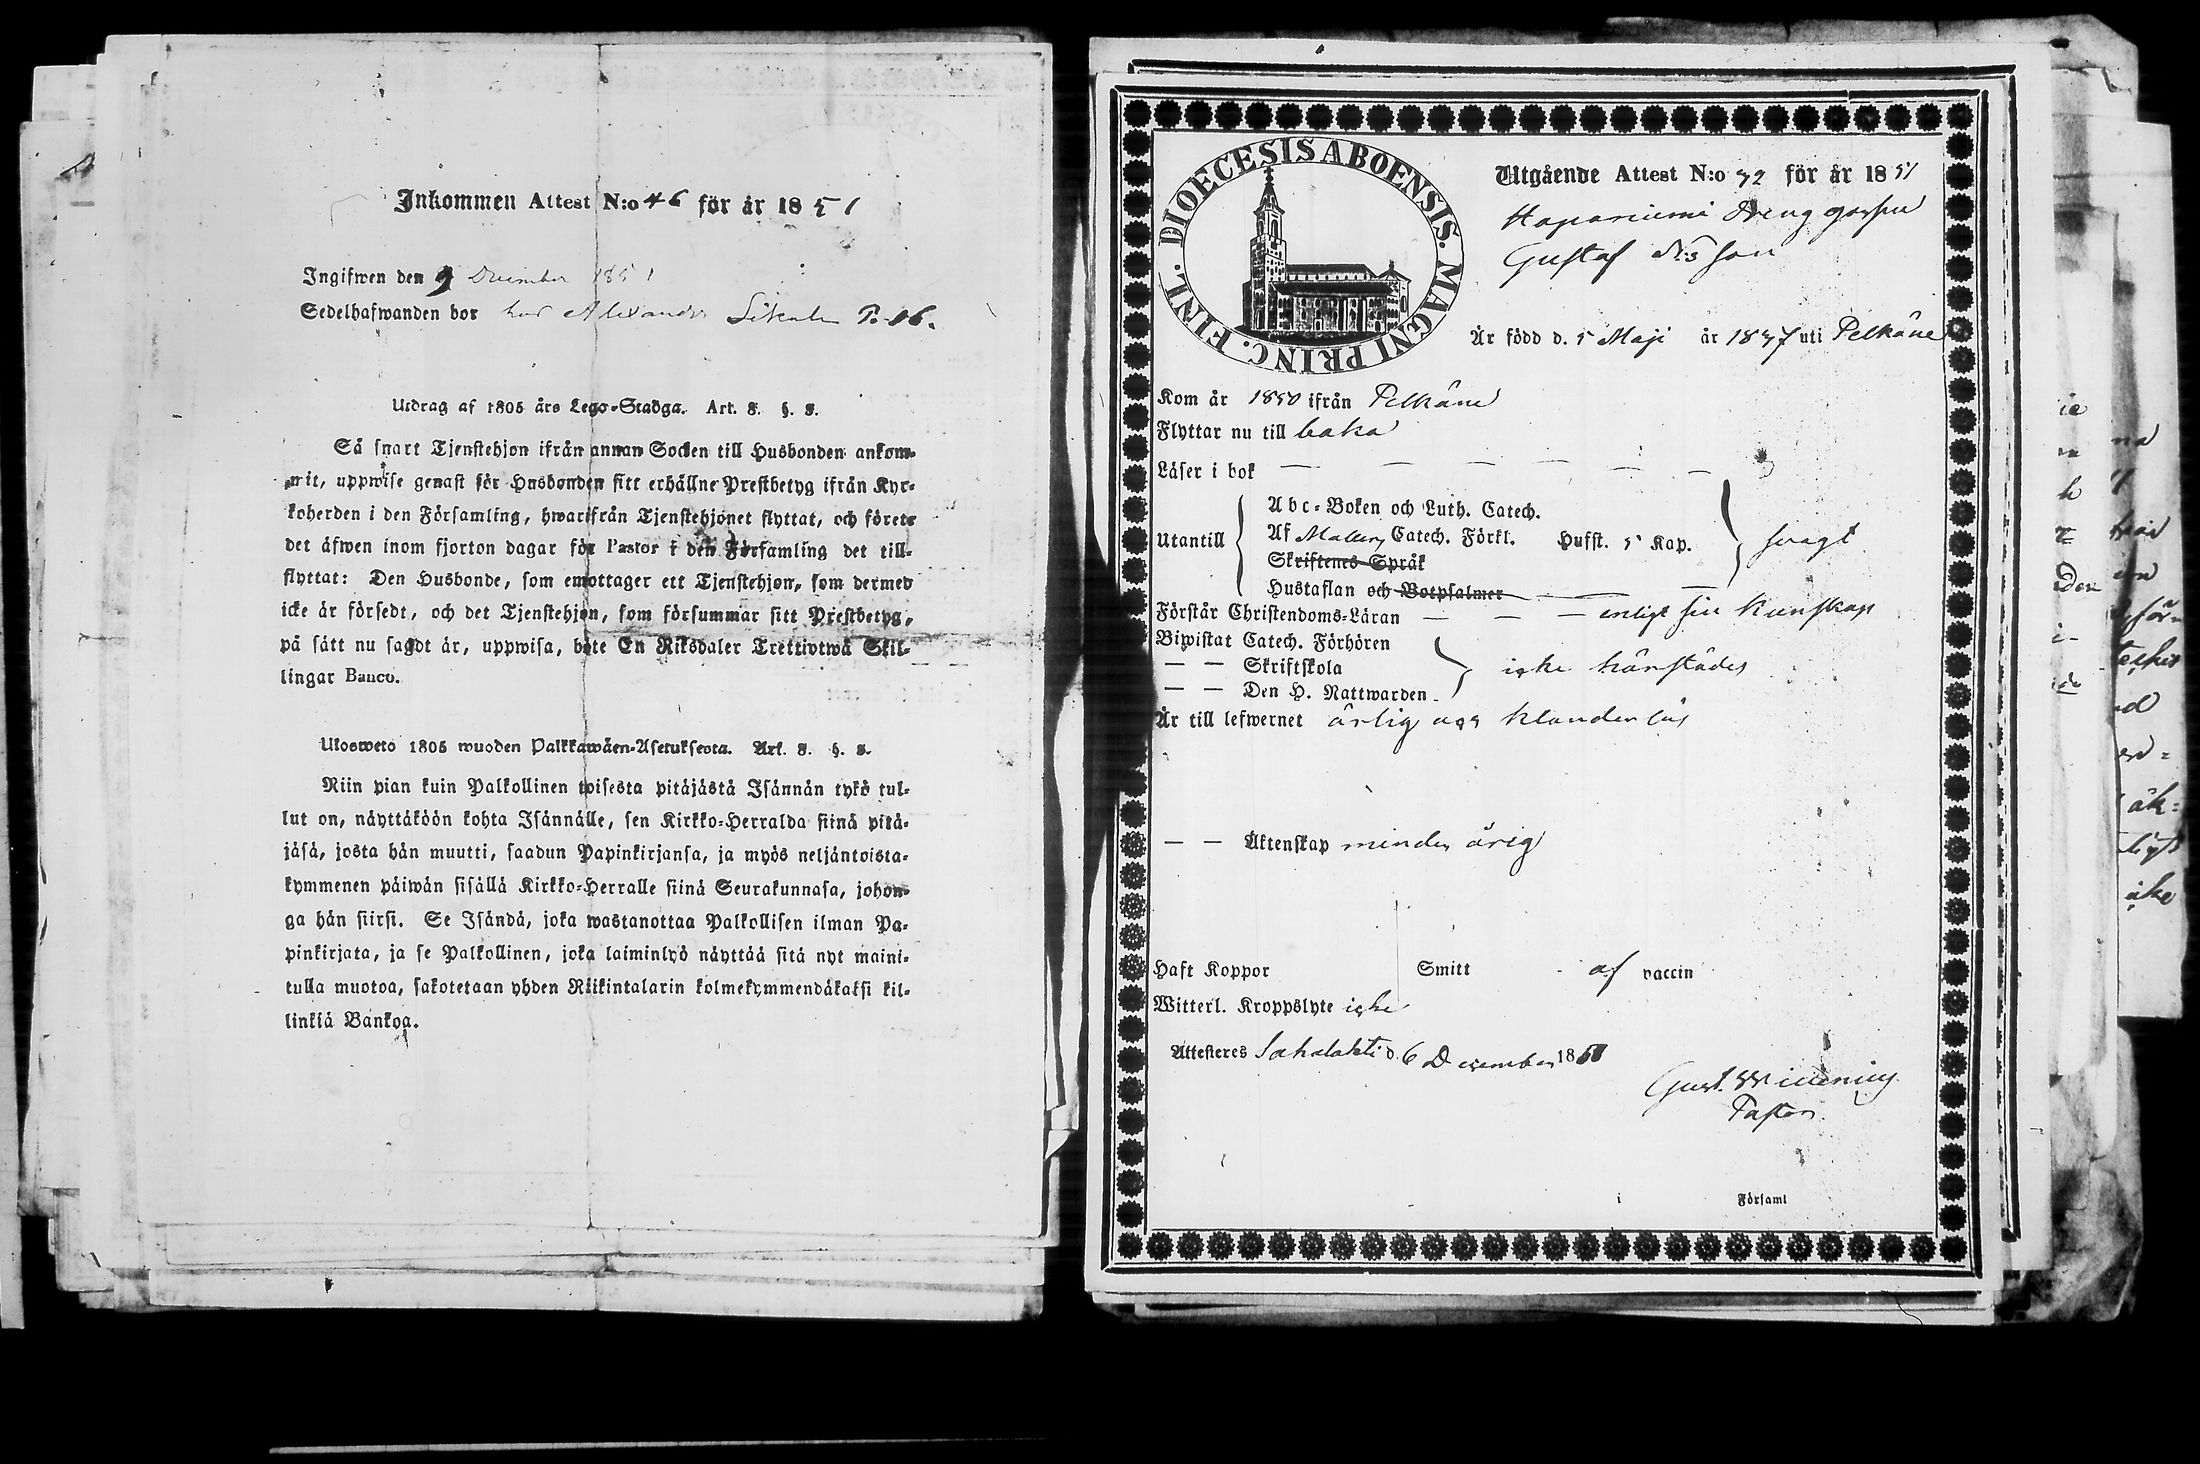 Inkommen Attest N:o 46 för år 1851
Ingifwen den 9 December 1851
Sedelhafwanden bor hos Alexander P. 16.
Utdrag af 1805 års Lego-Stadga. Art. 8. §. 8.
Så snart Tjenstehjon ifrån annan Socken till Husbonden ankom-
mit, uppwise genast för Husbonden sitt erhållne Prestbetyg ifrån Kyr-
koherden i den Församling, hwarifrån Tjenstehjonet flyttat, och förete
det äfwen inom fjorton dagar för Pastor i den Församling det till-
flyttat: Den Husbonde, som emottager ett Tjenstehjon, som dermed
icke är försedt, och det Tjenstehjon, som försummar sitt Prestbetyg,
på sätt nu sagdt är, uppwisa, böte En Riksdaler Trettiotwå Skil-
lingar Banco.
Ulosweto 1805 wuoden Palkkawäen-Asetuksesta. Art. 8. §. 8.
Niin pian kuin Palkollinen toisesta pitäjästä Isännän tykö tul-
lut on, näyttäköön kohta Isännälle, sen Kirkko-Herralda siinä pitä-
jäsä, josta hän muutti, saadun Papinkirjansa, ja myös neljäntoista-
kymmenen päiwän sisällä Kirkko-Herralle siinä Seurakunnasa, johon-
ga hän siirsi. Se Isändä, joka wastanottaa Palkollisen ilman Pa-
pinkirjata, ja se Palkollinen, joka laiminlyö näyttää sitä nyt maini-
tulla muotoa, sakotetaan yhden Riikintalarin kolmekymmendäkaksi kil-
linkiä Bankoa.
DIOECESIS ABOENSIS. MAGNI PRINC. FINL.
Utgående Attest N:o 32 för år 1851
Haponiemi Drenggossen
Gustaf Nisson
Är född d. 5 Maji år 1837 uti Pelkäne
Kom år 1850 ifrån Pelkäne
Flyttar nu till baka
Läser i bok — — — — — —
Abc-Boken och Luth. Catech.
Utantill Af Mallerg Catech. Förkl. Husst. 5 Kap. svagt
Skriftenes Språk
Hustaflan och Botpsalmer — —
Förstår Christendoms-Läran — — — enligt sin kunskap
Biwistat Catech. Förhören
— — Skriftskola icke härstädes
— — Den H. Nattwarden
Är till lefwernet ärlig och klanderlös
— — Äktenskap minder årig
Haft Koppor Smitt af vaccin
Witterl. Kroppslyte icke
Attesteres Sahalahti d. 6 December 1851
Gust. Winning
Pastor
i Församl